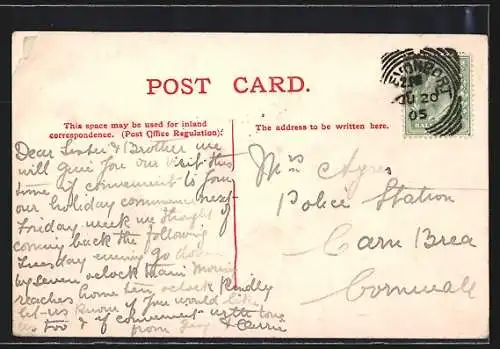 POST CARD.
This space may be used for inland
correspondence. (Post Office Regulation).
The address to be written here.
DEVONPORT
JU 20
05
Dear Sister & Brother we
will give you our visit this
time if convenient to you
our holiday commences next
Friday week we thought of
coming back the following
Tuesday evening go down
by seven oclock train
reaches home ten oclock Kindly
let us know if you would like
us too & if convenient with love
from & Carrie
Mrs Ayres
Police Station
Carn Brea
Cornwall